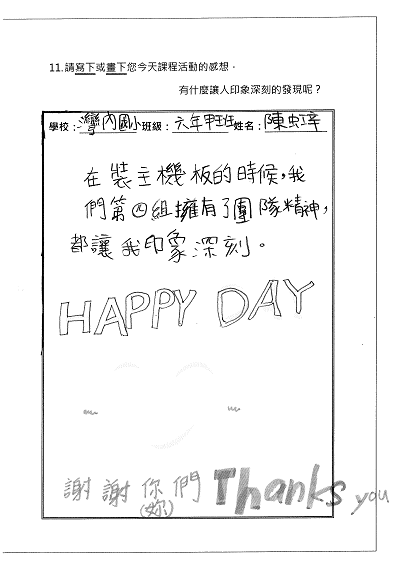 11.請寫下或畫下您今天課程活動的感想，
有什麼讓人印象深刻的發現呢？
學校：灣內國小班級：六年甲班姓名：陳虹瑋
在裝主機板的時候，我
們第四組擁有了團隊精神，
都讓我印象深刻。
HAPPY DAY
謝謝你們 Thanks you
(妳)